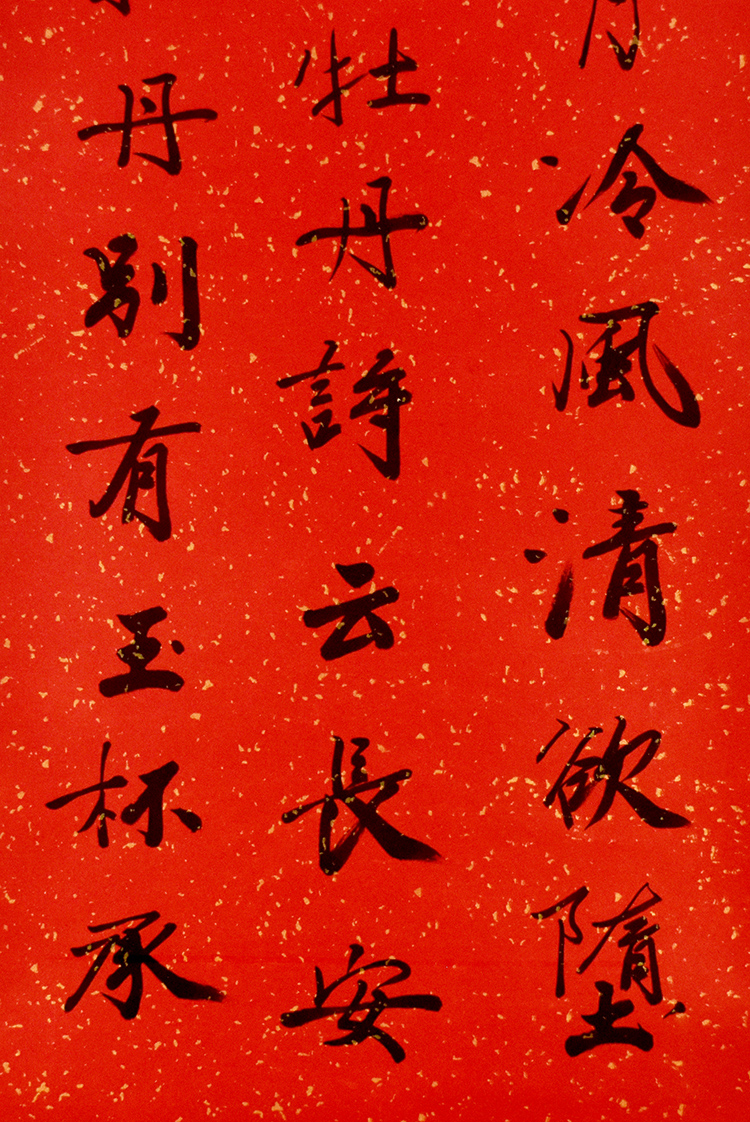 月冷風清欲墮
牡丹詩云長安
丹別有玉杯承